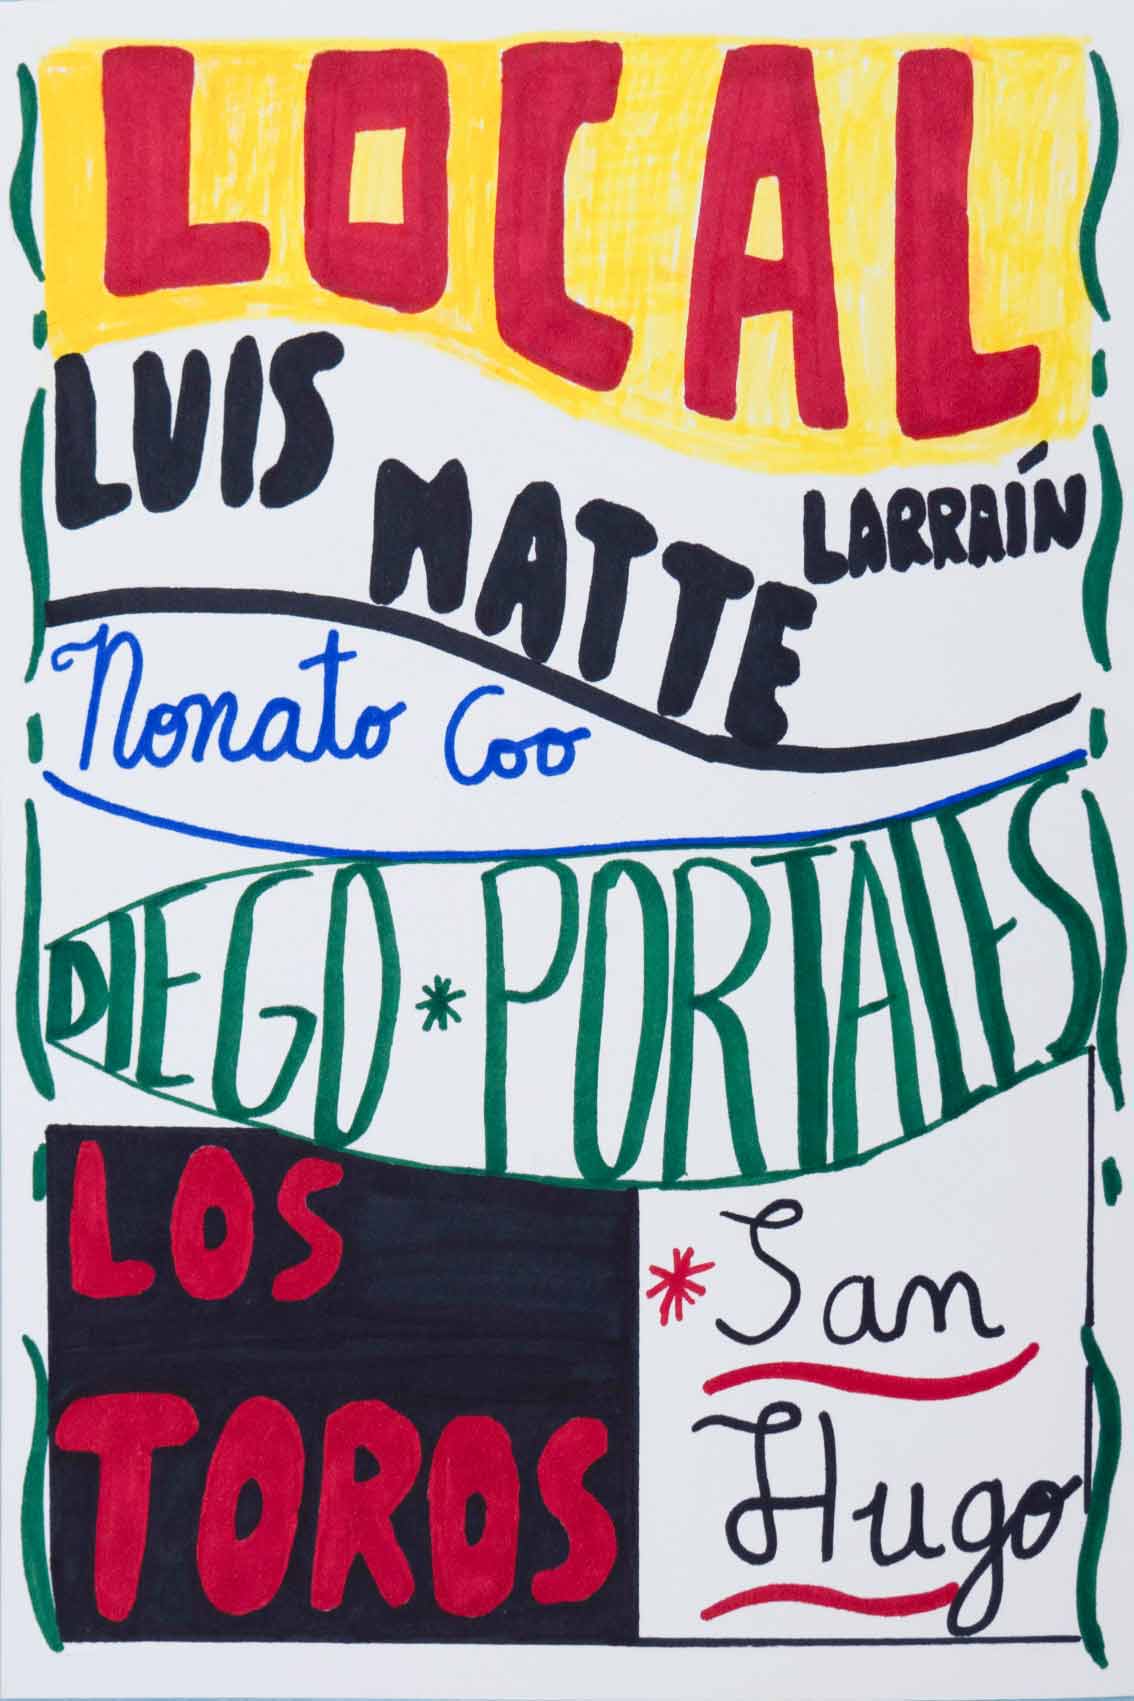 LOCAL
LUIS MATTE LARRAÍN
Nonato Coo
DIEGO * PORTALES
LOS
TOROS
* San
Hugo